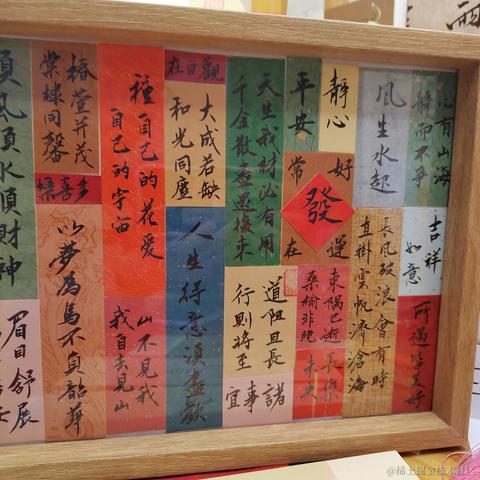 心有山海
靜而不爭
吉祥
如意
所遇皆美好
風生水起
長風破浪會有時
直掛雲帆濟滄海
靜心
平安
好運
常在
發
東隅已逝
桑榆非晚
長樂
未央
天生我材必有用
千金散盡還復來
道阻且長
行則將至
諸事宜
觀自在
大成若缺
和光同塵
人生得意須盡歡
種自己的花愛
自己的宇宙
山不見我
我自去見山
椿萱并茂
棠棣同馨
多喜樂
以夢為馬不負韶華
順風順水順財神
眉目舒展
@稀土掘金技术社区